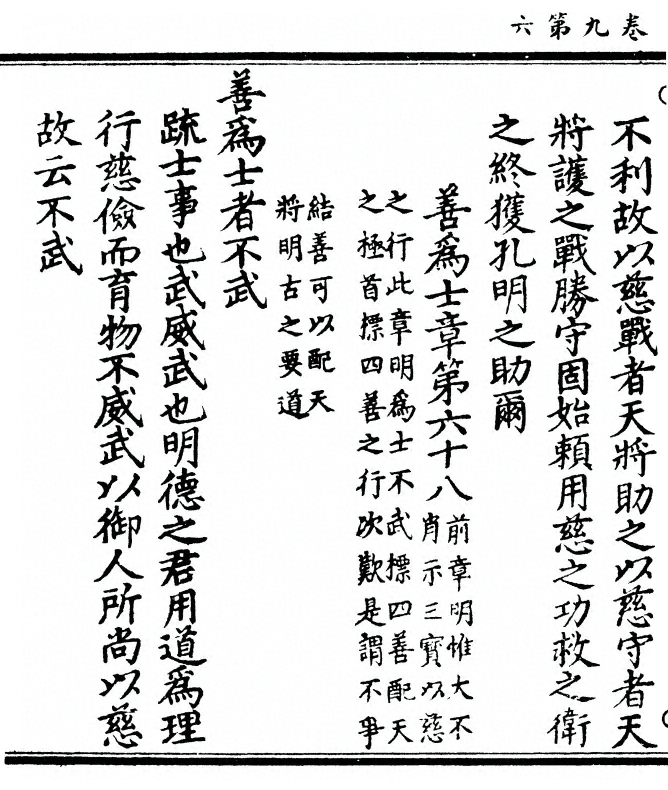 卷九第六
不利故以慈戰者天將助之以慈守者天
將護之戰勝守固始賴用慈之功救之衛
之終獲孔明之助爾
善爲士章第六十八
前章明惟大不
肖示三寶以慈
之行此章明爲士不武摽四善配天
之極首摽四善之行次歎是謂不爭
結善可以配天
將明古之要道
善爲士者不武
䟽士事也武威武也明德之君用道爲理
行慈儉而育物不威武以御人所尚以慈
故云不武